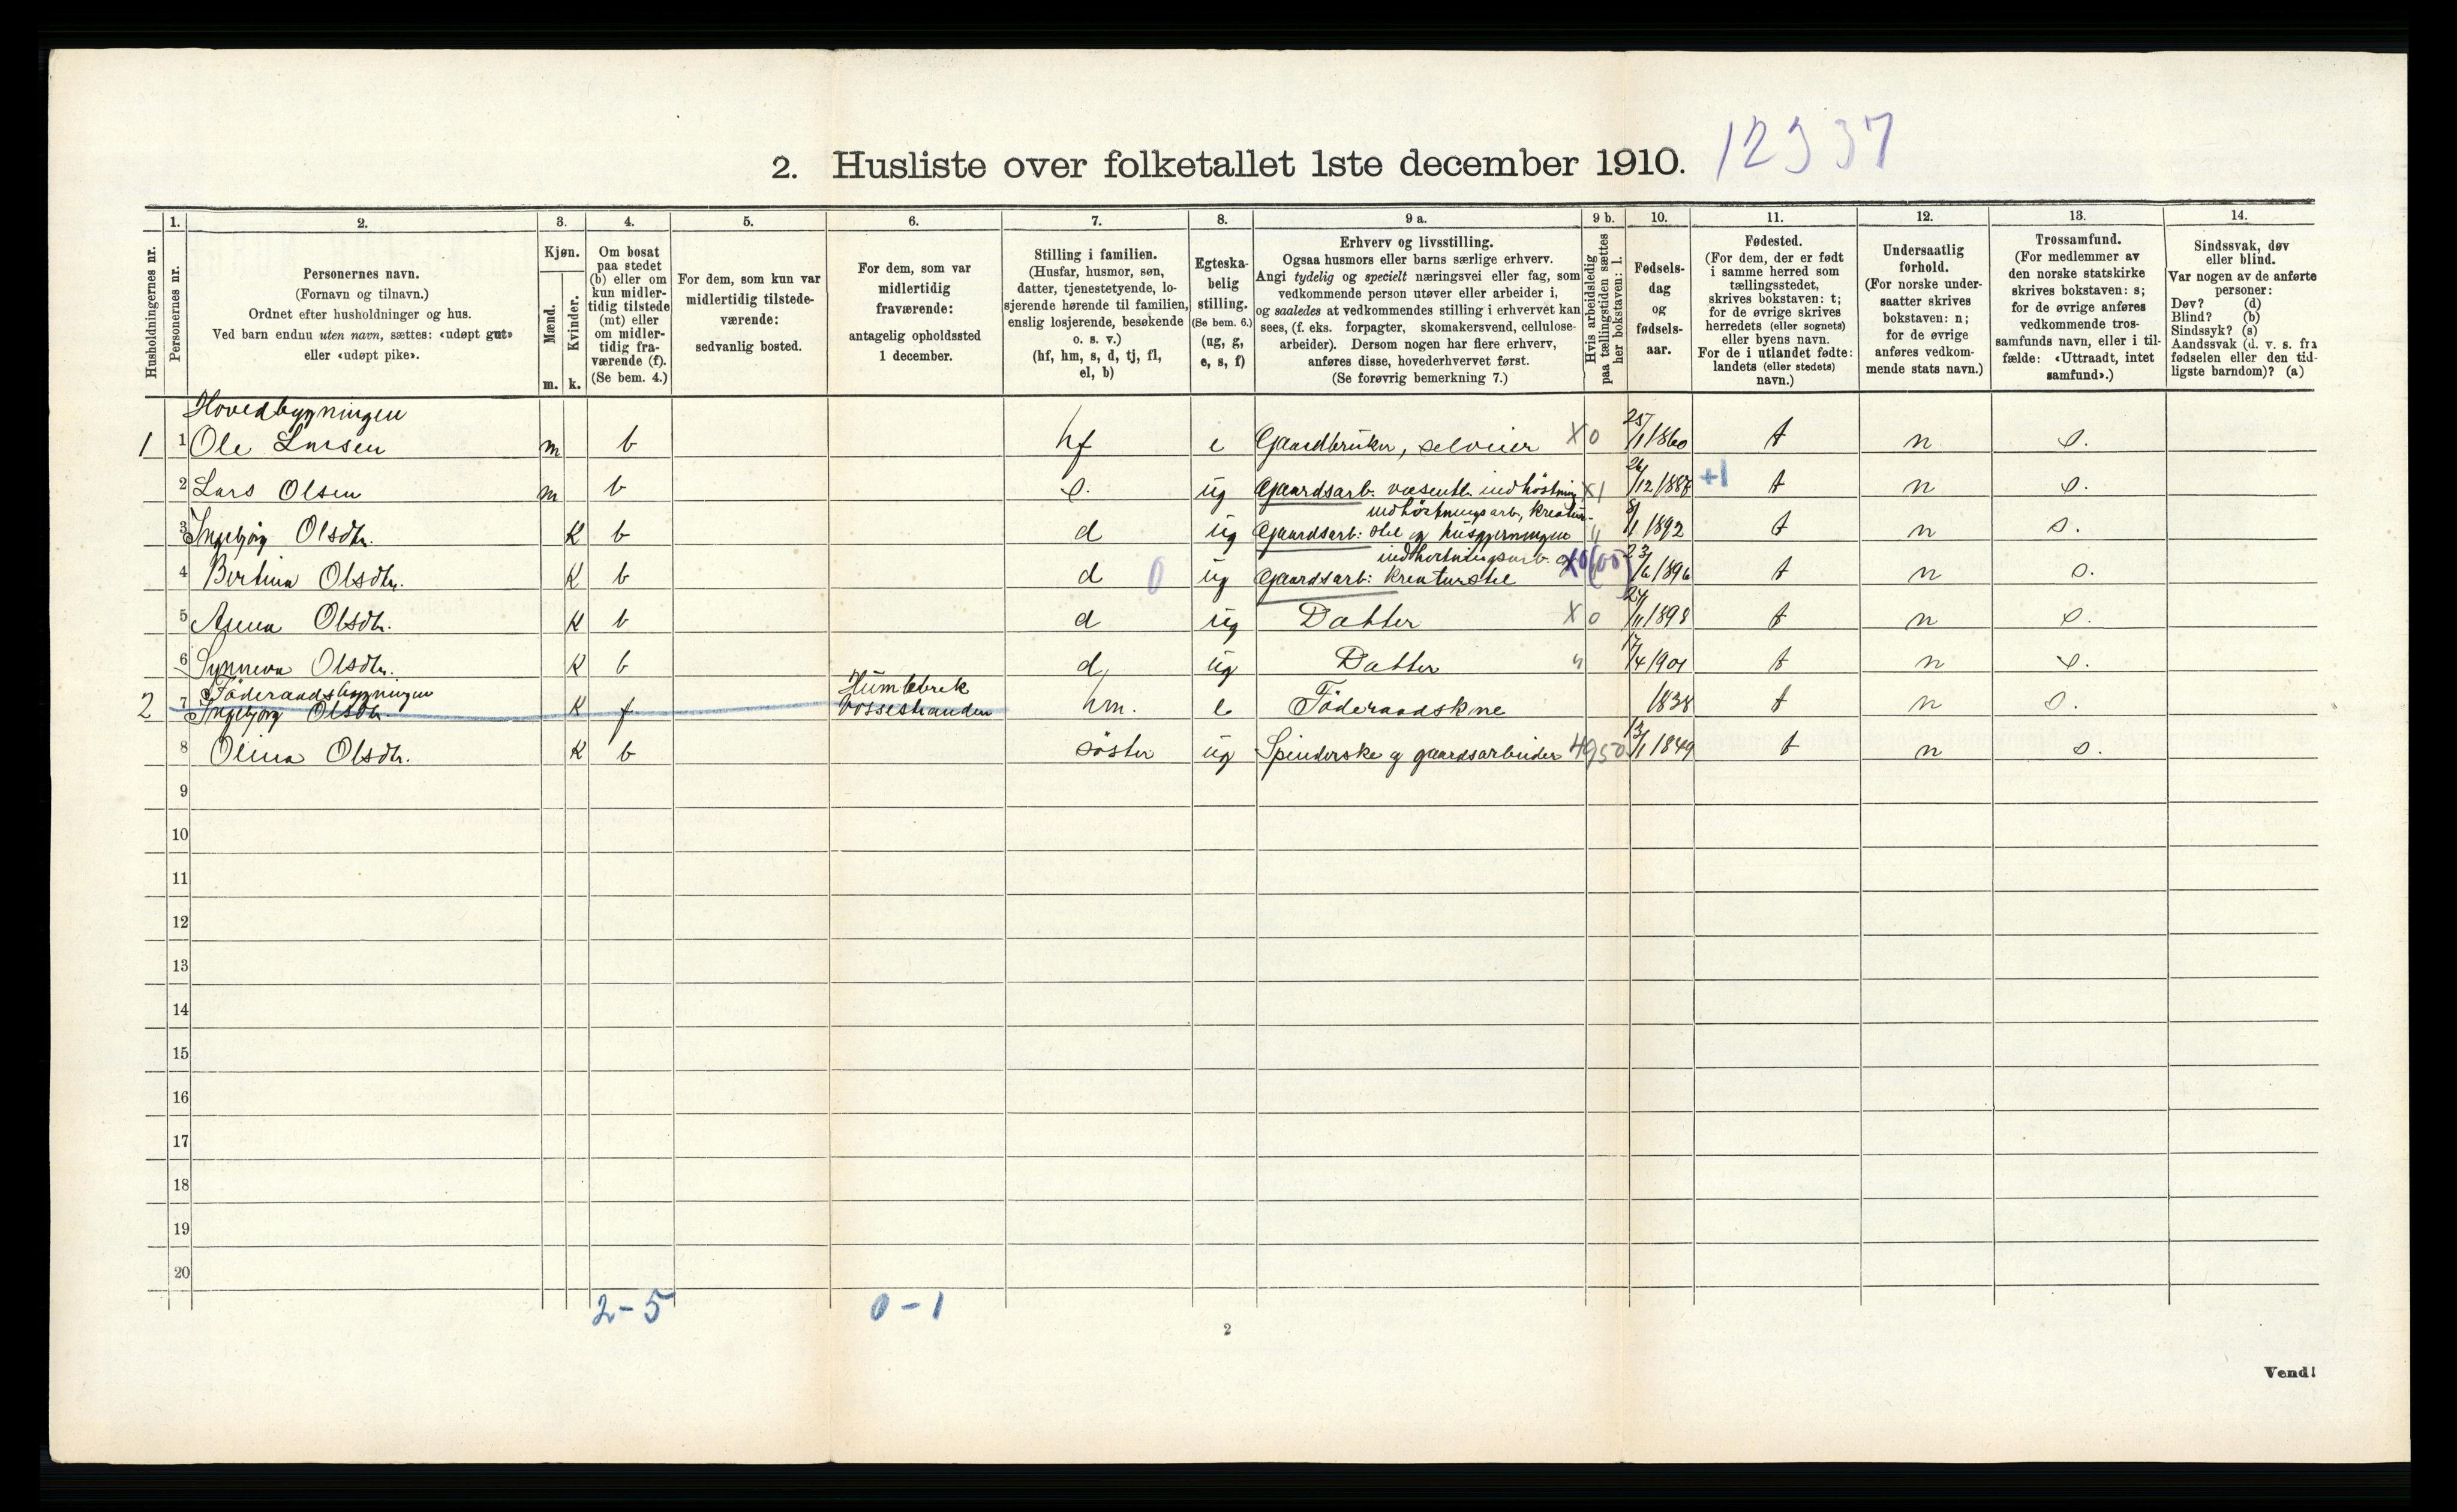 2. Husliste over folketallet 1ste december 1910. 12337
1. 2. 3. 4. 5. 6. 7. 8. 9 a. 9 b. 10. 11. 12. 13. 14.
Husholdningernes nr.
Personernes nr.
Personernes navn.
(Fornavn og tilnavn.)
Ordnet efter husholdninger og hus.
Ved barn endnu uten navn, sættes: «udøpt gut»
eller «udøpt pike».
Kjøn.
Mænd.
Kvinder.
m. k.
Om bosat
paa stedet
(b) eller om
kun midler-
tidig tilstede
(mt) eller
om midler-
tidig fra-
værende (f).
(Se bem. 4.)
For dem, som kun var
midlertidig tilstede-
værende:
sedvanlig bosted.
For dem, som var
midlertidig
fraværende:
antagelig opholdssted
1 december.
Stilling i familien.
(Husfar, husmor, søn,
datter, tjenestetyende, lo-
sjerende hørende til familien,
enslig losjerende, besøkende
o. s. v.)
(hf, hm, s, d, tj, fl,
el, b)
Egteska-
belig
stilling.
(Se bem. 6.)
(ug, g,
e, s, f)
Erhverv og livsstilling.
Ogsaa husmors eller barns særlige erhverv.
Angi tydelig og specielt næringsvei eller fag, som
vedkommende person utøver eller arbeider i,
og saaledes at vedkommendes stilling i erhvervet kan
sees, (f. eks. forpagter, skomakersvend, cellulose-
arbeider). Dersom nogen har flere erhverv,
anføres disse, hovederhvervet først.
(Se forøvrig bemerkning 7.)
Hvis arbeidsledig
paa tællingstiden sættes
her bokstaven: l.
Fødsels-
dag
og
fødsels-
aar.
Fødested.
(For dem, der er født
i samme herred som
tællingsstedet,
skrives bokstaven: t;
for de øvrige skrives
herredets (eller sognets)
eller byens navn.
For de i utlandet fødte:
landets (eller stedets)
navn.)
Undersaatlig
forhold.
(For norske under-
saatter skrives
bokstaven: n;
for de øvrige
anføres vedkom-
mende stats navn.)
Trossamfund.
(For medlemmer av
den norske statskirke
skrives bokstaven: s;
for de øvrige anføres
vedkommende tros-
samfunds navn, eller i til-
fælde: «Uttraadt, intet
samfund».)
Sindssvak, døv
eller blind.
Var nogen av de anførte
personer:
Døv? (d)
Blind? (b)
Sindssyk? (s)
Aandssvak (d. v. s. fra
fødselen eller den tid-
ligste barndom)? (a)
Hovedbygningen
1 1 Ole Larsen m b hf e Gaardbruker, selveier X 0 25/1 1860 t n s.
2 Lars Olsen m b s. ug Gaardsarb. væsentl. indhöstning X1 26/12 1887 +1 t n s.
indhöstningsarb, kreatur-
3 Ingebjörg Olsdtr. K b d ug Gaardsarb: stel og husgjerningen " 8/1 1892 t n s.
indhöstningsarb. og
4 Bertina Olsdtr. K b d 0 ug Gaardsarb: kreaturstel 23/6 1896 t n s.
5 Anna Olsdtr. K b d ug Datter X 0 24/11 1898 t n s.
6 Synneva Olsdtr. K b d, ug Datter " 17/4 1901 t n s.
Föderaadsbygningen Humlebrek
2 7 Ingebjörg Olsdtr. K f Vossestranden hm. e Föderaadskne 1838 t n s.
8 Olina Olsdtr. K b söster ug Spinderske og gaardsarbeider 4950 13/1 1849 t n s.
9
10
11
12
13
14
15
16
17
18
19
20
2-5 0-1
2
Vend!